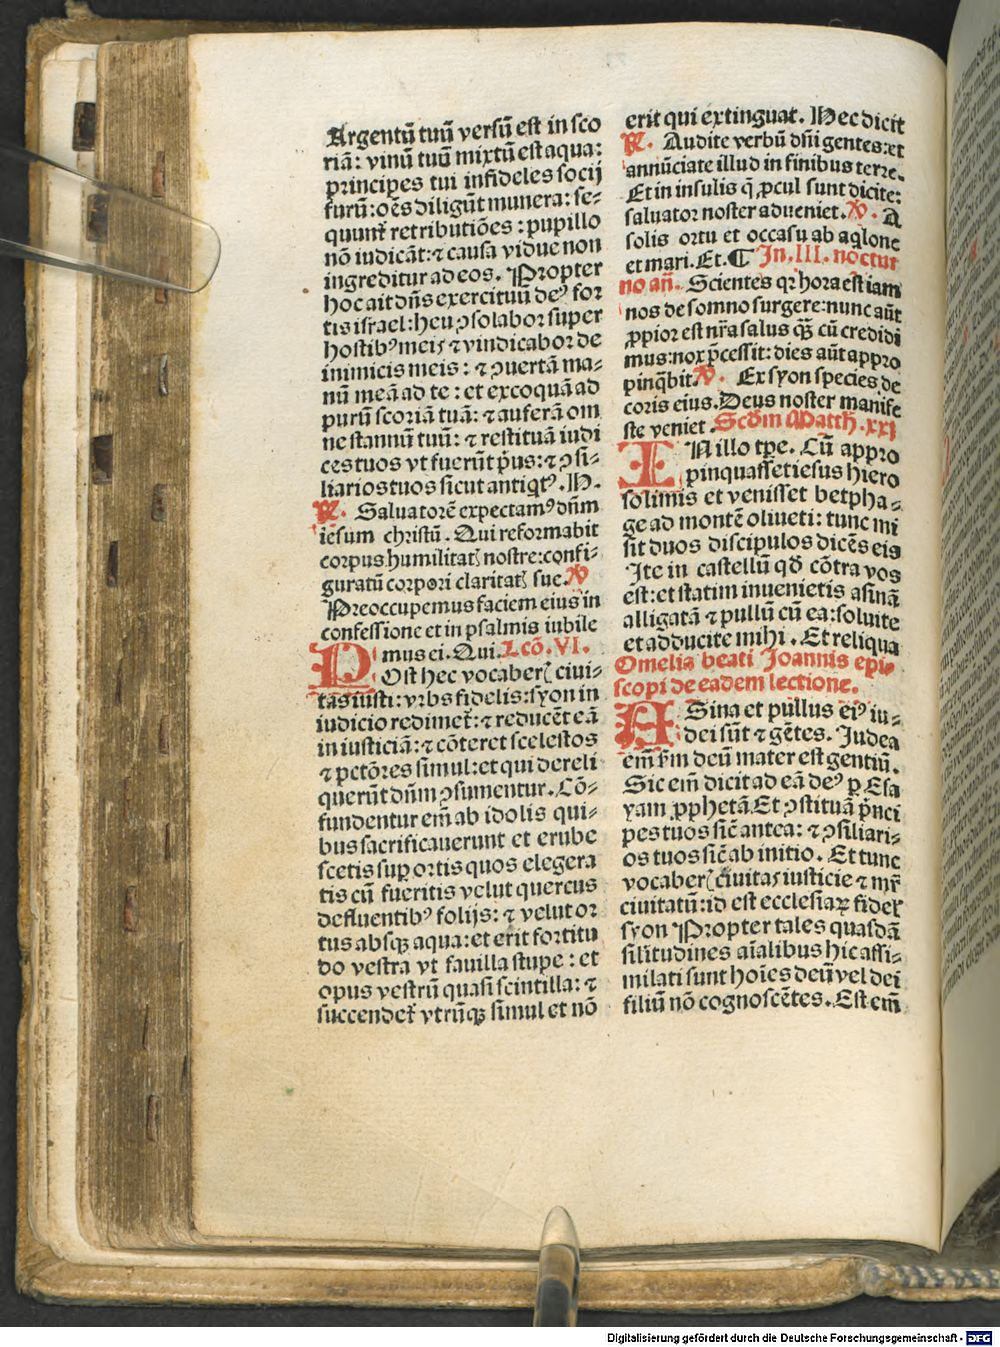 Argentū tuū versū est in sco
riā: vinū tuū mixtū est aqua:
principes tui infideles socij
furū: oēs diligūt munera: se⸗
quunt᷑ retributiōes: pupillo
nō iudicāt: ⁊ causa vidue non
ingreditur ad eos. Propter
hoc ait dn̄s exercituū deꝰ for
tis israel: heu ꝯsolabor super
hostibꝰ meis ⁊ vindicabor de
inimicis meis: ⁊ ꝯuertā ma⸗
nū meā ad te: et excoquā ad
purū scoriā tuā: ⁊ auferā om
ne stannū tuū: ⁊ restituā iudi
ces tuos vt fuerūt p̄us: ⁊ ꝯsi⸗
liarios tuos sicut antiqtꝰ. H.
℟. Saluatorē expectamꝰ dn̄m
iesum christū. Qui reformabit
corpus humilitatꝭ nostre: confi⸗
guratū corpori claritatꝭ sue. ℣
Preoccupemus faciem eius in
confessione et in psalmis iubile
mus ei. Qui. Lcō. VI.
POst hec vocaberꝭ ciui⸗
tas iusti: vrbs fidelis: syon in
iudicio redimet᷑: ⁊ reducēt eā
in iusticiā: ⁊ cōteret scelestos
⁊ pctōres simul: et qui dereli
querūt dn̄m ꝯsumentur. Cō⸗
fundentur em̄ ab idolis qui⸗
bus sacrificauerunt et erube
scetis suꝑ ortis quos elegera
tis cū fueritis velut quercus
defluentibꝰ folijs: ⁊ velut or
tus absqꝫ aqua: et erit fortitu
do vestra vt fauilla stupe: et
opus vestrū quasi scintilla: ⁊
succendet᷑ vtrūqꝫ simul et nō
erit qui extinguat. Hec dicit
℟. Audite verbū dn̄i gentes: et
annūciate illud in finibus terre.
Et in insulis q̄ ꝓcul sunt dicite:
saluator noster adueniet. ℣. A
solis ortu et occasu ab aqlone
et mari. Et. ¶ In. III. noctur
no an̄. Scientes qꝛ hora est iam
nos de somno surgere: nunc aūt
ꝓpior est nr̄a salus qꝫ̄ cū credidi
mus: nox p̄cessit: dies aūt appro
pinq̄bit. ℣. Ex syon species de
coris eius. Deus noster manife
ste veniet. Scd̄m Matth. xxi
IN illo tp̄e. Cū appro
pinquasset iesus hiero
solimis et venisset betpha⸗
ge ad montē oliueti: tunc mi
sit duos discipulos dicēs eis
Ite in castellū qd̄ cōtra vos
est: et statim inuenietis asinā
alligatā ⁊ pullū cū ea: soluite
et adducite mihi. Et reliqua
Omelia beati Joannis epi⸗
scopi de eadem lectione.
ASina et pullus eiꝰ iu⸗
dei sūt ⁊ gētes. Iudea
em̄ fm̄ deū mater est gentiū.
Sic em̄ dicit ad eā deꝰ ꝑ Esa
yam ꝓphetā. Et ꝯstituā p̄nci
pes tuos sic̄ antea: ⁊ ꝯsiliari⸗
os tuos sic̄ ab initio. Et tunc
vocaberꝭ ciuitas iusticie ⁊ mr̄
ciuitatū: id est ecclesiaꝝ fidel᷑
syon Propter tales quasdā
silitudines aīalibus hic assi⸗
milati sunt hoīes deū vel dei
filiū nō cognoscētes. Est em̄
Digitalisierung gefördert durch die Deutsche Forschungsgemeinschaft - DFG